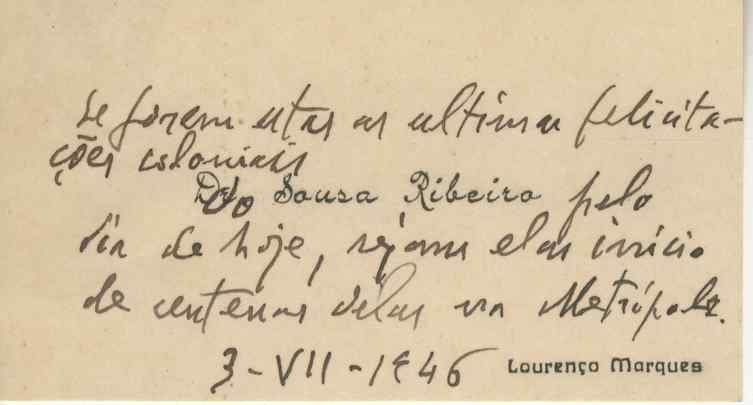 Se forem estas as ultimas felicita-
ções coloniais
Do Sousa Ribeiro pelo
dia de hoje, sejam elas inicio
de centenas delas na Metrópole.
3-VII-1946 Lourenço Marques